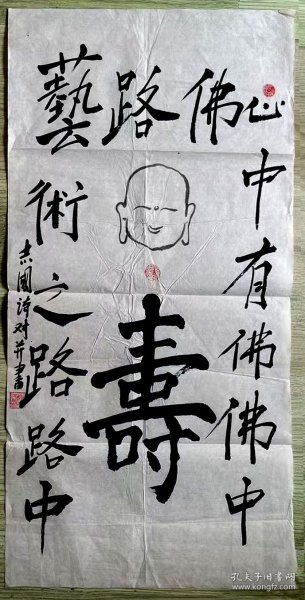 心中有佛佛中
佛
壽
路
藝術之路路中
志國诗对并書
孔夫子旧书网
www.kongfz.com